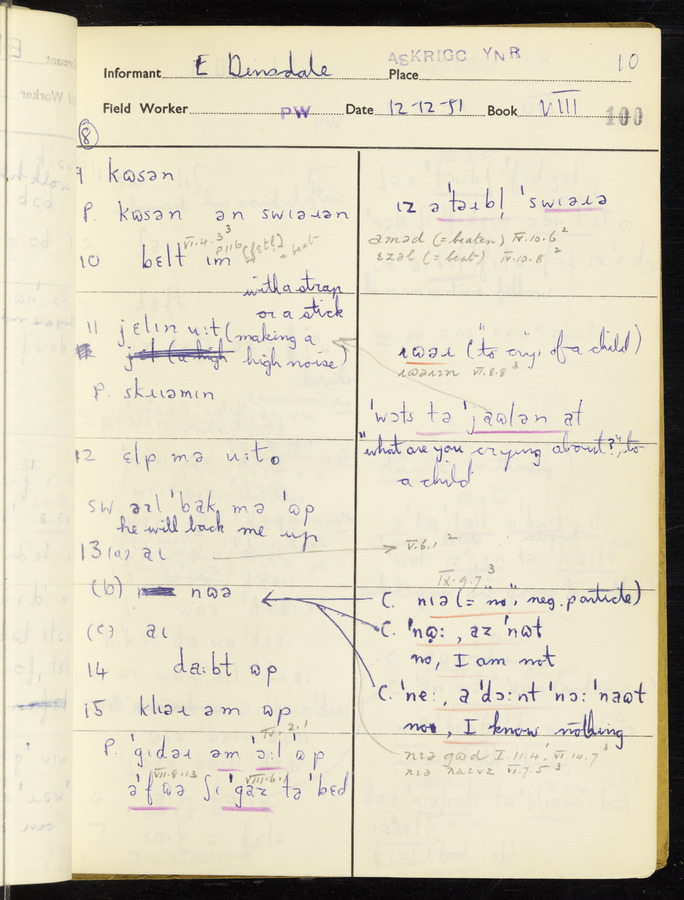 Informant E Dinsdale Place ASKRIGG YNR 10
Field Worker PW Date 12-12-51 Book VIII 100
8
9 kɷsən
p. kɷsən ən swɪəɹən
10 bɛlt ɪm
VI.4.3³
with a strap
or a stick
11 jɛlɪn u:t (making a
high noise)
p. skɹɪəmɪn
12 ɛlp mə u:tə
sw əɹl 'bak mə 'ɷp
he will back me up
13 (a) aɪ
(b) nɷə
(c) aɪ
14 da:bt ɷp
15 klɪəɹ əm ɷp
IV.2.1
p. 'gɪdəɹ əm 'ɔ:l 'ɷp
VII.8.13 VIII.6.1
ə'fɷə ʃɪ 'gaz tə 'bɛd
ɪz ə 'tɛɪbl̩ 'swɪəɹə
aməd (= beaten) IV.10.6²
ɛzəl (= beat) IV.10.8²
ɹɷəɹ ("to cry", of a child)
ɹɷəɹɪn VI.8.8³
'wɔts tə 'jaɷlən at
"what are you crying about?", to
a child
V.6.1²
IX.9.7³
C. nɪə (= "no", neg. particle)
C. 'nɷ: , az 'nɷt
no, I am not
C. 'ne: , a 'dɔ:nt 'nɔ: 'naɷt
no, I know nothing
nɪə gɷd I.11.4, VI.14.7³
nɪə naɪvz VI.7.5³